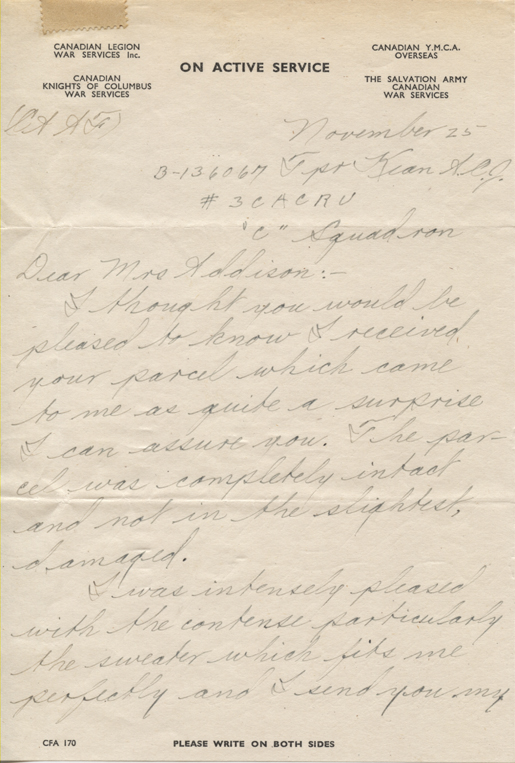 CANADIAN LEGION
WAR SERVICES Inc.
CANADIAN
KNIGHTS OF COLUMBUS
WAR SERVICES
ON ACTIVE SERVICE
CANADIAN Y.M.C.A.
OVERSEAS
THE SALVATION ARMY
CANADIAN
WAR SERVICES
November 25
B-136067 Tpr Kean A.C.J.
# 3 C A C R U
"C" Squadron
Dear Mrs Addison:-
I thought you would be
pleased to know I received
your parcel which came
to me as quite a surprise
I can assure you. The par-
cel was completely intact
and not in the slightest,
damaged.
I was intensely pleased
with the contense particularly
the sweater which fits me
perfectly and I send you my
CFA 170
PLEASE WRITE ON BOTH SIDES